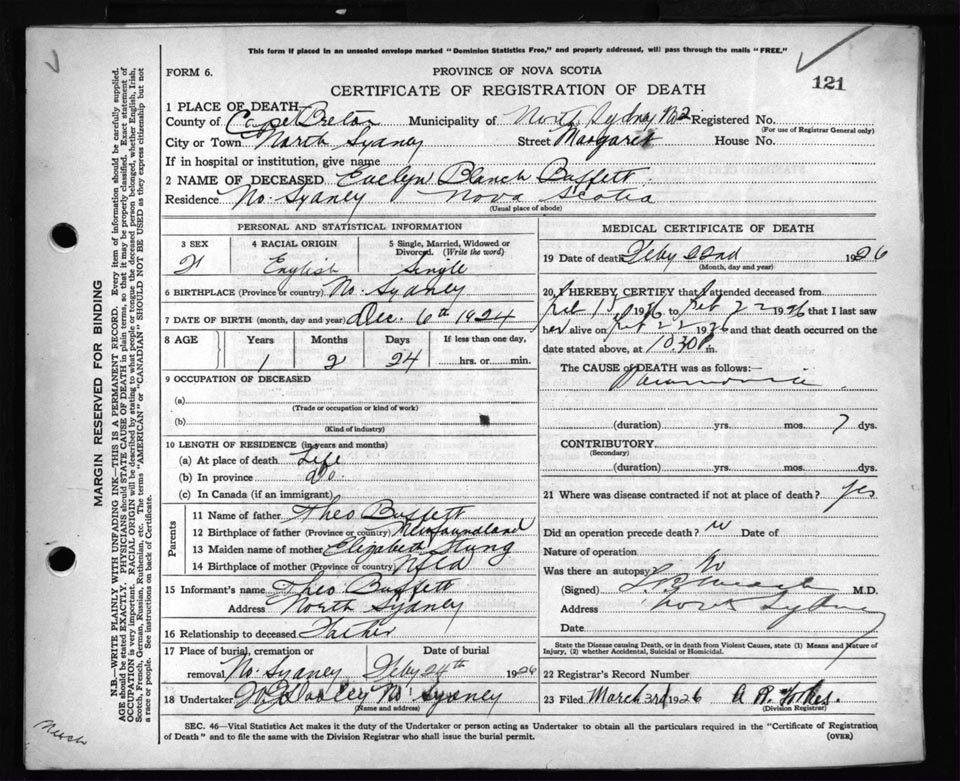 This form if placed in an unsealed envelope marked "Dominion Statistics Free," and properly addressed, will pass through the mails "FREE."
FORM 6.
PROVINCE OF NOVA SCOTIA
121
CERTIFICATE OF REGISTRATION OF DEATH
1 PLACE OF DEATH
County of Cape Breton Municipality of North Sydney No 2 Registered No.
(For use of Registrar General only)
City or Town North Sydney Street Margaret House No.
If in hospital or institution, give name
2 NAME OF DECEASED Evelyn Blanch Buffett
Residence No. Sydney Nova Scotia
(Usual place of abode)
PERSONAL AND STATISTICAL INFORMATION
3 SEX 4 RACIAL ORIGIN 5 Single, Married, Widowed or Divorced. (Write the word)
English Single
6 BIRTHPLACE (Province or country) No. Sydney
7 DATE OF BIRTH (month, day and year) Dec. 6th 1924
8 AGE Years Months Days If less than one day,
1 2 24 hrs. or min.
9 OCCUPATION OF DECEASED
(a)
(Trade or occupation or kind of work)
(b)
(Kind of industry)
10 LENGTH OF RESIDENCE (in years and months)
(a) At place of death Life
(b) In province do.
(c) In Canada (if an immigrant)
Parents
11 Name of father Theo Buffett
12 Birthplace of father (Province or country) Newfoundland
13 Maiden name of mother Elizabeth
14 Birthplace of mother (Province or country) Nfld
15 Informant's name Theo Buffett
Address North Sydney
16 Relationship to deceased Father
17 Place of burial, cremation or Date of burial
removal No. Sydney Feby 24th 1926
18 Undertaker No. Sydney
(Name and address)
MEDICAL CERTIFICATE OF DEATH
19 Date of death Feby 22nd 1926
(Month, day and year)
20 I HEREBY CERTIFY that I attended deceased from
Feb 15 1926 to Feb 22 1926 that I last saw
her alive on Feb 22 1926 and that death occurred on the
date stated above, at 10.30 P m.
The CAUSE OF DEATH was as follows:
Pneumonia
(duration) yrs. mos. 7 dys.
CONTRIBUTORY
(Secondary)
(duration) yrs. mos. dys.
21 Where was disease contracted if not at place of death? yes
Did an operation precede death? no Date of
Nature of operation
Was there an autopsy? No
(Signed) M.D.
Address North Sydney
Date
State the Disease causing Death, or in death from Violent Causes, state (1) Means and Nature of
Injury, (2) whether Accidental, Suicidal or Homicidal.
22 Registrar's Record Number
23 Filed March 3rd 1926
(Division Registrar)
SEC. 46—Vital Statistics Act makes it the duty of the Undertaker or person acting as Undertaker to obtain all the particulars required in the "Certificate of Registration
of Death" and to file the same with the Division Registrar who shall issue the burial permit. (OVER)
MARGIN RESERVED FOR BINDING
N.B.—WRITE PLAINLY WITH UNFADING INK—THIS IS A PERMANENT RECORD. Every item of information should be carefully supplied.
AGE should be stated EXACTLY. PHYSICIANS should STATE CAUSE OF DEATH in plain terms, so that it may be properly classified. Exact statement of
OCCUPATION is very important. RACIAL ORIGIN will be described by stating to what people or tongue the deceased person belonged, whether English, Irish,
Scotch, French, German, Russian, Ruthenian, etc. The terms "AMERICAN" or "CANADIAN" SHOULD NOT BE USED as they express citizenship but not
a race or people. See instructions on back of Certificate.
March